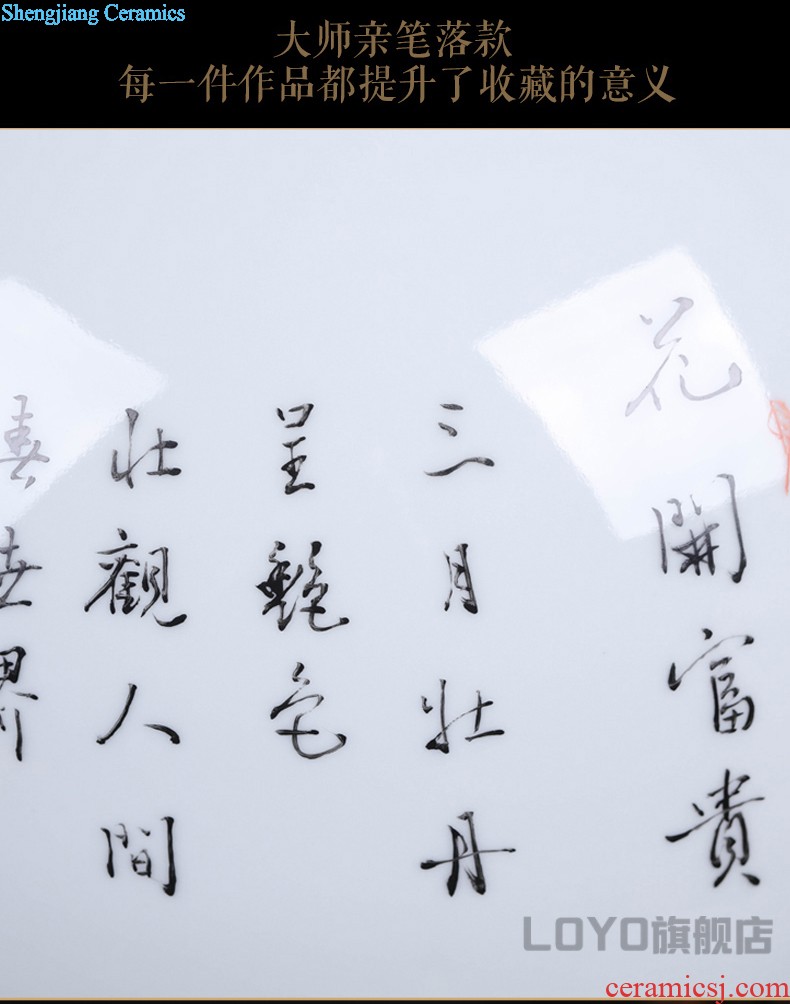 Shengjiang Ceramics
大师亲笔落款
每一件作品都提升了收藏的意义
花開富貴
三月牡丹
呈艷色
壮觀人間
界
LOYO旗舰店
ceramicsj.com